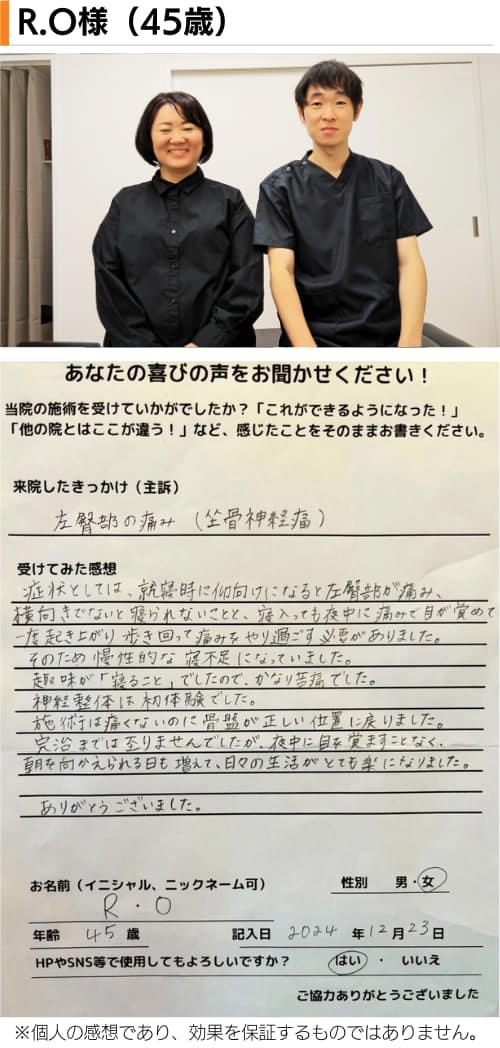 R.O様（45歳）
あなたの喜びの声をお聞かせください！
当院の施術を受けていかがでしたか？「これができるようになった！」
「他の院とはここが違う！」など、感じたことをそのままお書きください。
来院したきっかけ（主訴）
左臀部の痛み（坐骨神経痛）
受けてみた感想
症状としては、就寝時に仰向けになると左臀部が痛み、
横向きでないと寝られないことと、寝入っても夜中に痛みで目が覚めて
一度起き上がり歩き回って痛みをやり過ごす必要がありました。
そのため慢性的な寝不足になっていました。
趣味が「寝ること」でしたので、かなり苦痛でした。
神経整体は初体験でした。
施術は痛くないのに骨盤が正しい位置に戻りました。
完治までは至りませんでしたが、夜中に目を覚ますことなく、
朝を向かえられる日も増えて、日々の生活がとても楽になりました。
ありがとうございました。
お名前（イニシャル、ニックネーム可） 性別 男・女
R・O
年齢 45 歳 記入日 2024 年 12 月 23 日
HPやSNS等で使用してもよろしいですか？ はい ・ いいえ
ご協力ありがとうございました
※個人の感想であり、効果を保証するものではありません。